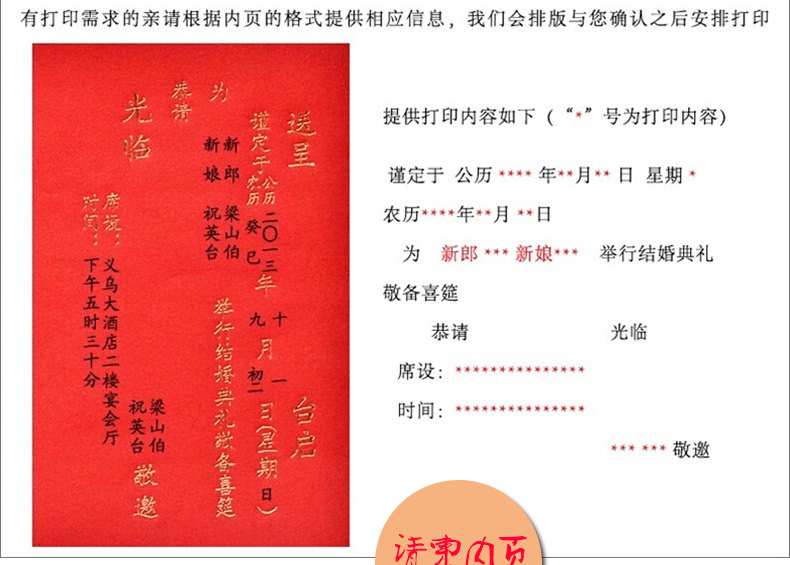 有打印需求的亲请根据内页的格式提供相应信息，我们会排版与您确认之后安排打印
送呈 台启
谨定于 公历 二〇一三 农历 癸巳 年 十 九 月 一 初二 日(星期日)
为 新郎 梁山伯
新娘 祝英台
举行结婚典礼敬备喜筵
恭请
光临
席设：义乌大酒店二楼宴会厅
时间：下午五时三十分
梁山伯
祝英台
敬邀
提供打印内容如下（“*”号为打印内容）
谨定于 公历 **** 年**月** 日 星期 *
农历****年**月 **日
为 新郎 *** 新娘*** 举行结婚典礼
敬备喜筵
恭请 光临
席设：***************
时间：***************
*** *** 敬邀
请柬内页